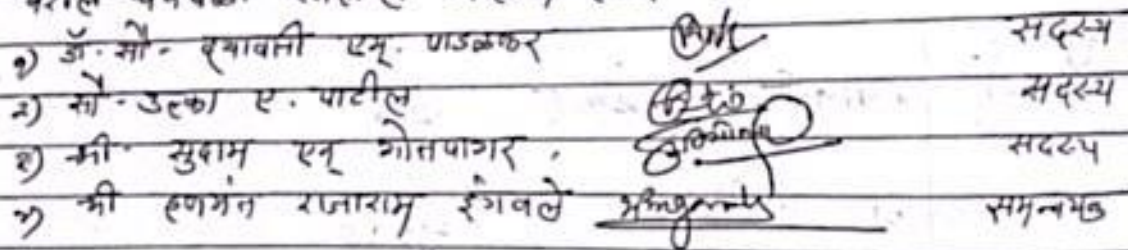 १) डॉ. सौ. दयावती एम्. पाडळकर सदस्य
२) सौ. उल्का ए. पाटील सदस्य
३) श्री. सुदाम एन् गोतपागर. सदस्य
४) श्री हणमंत राजाराम इंगवले समन्वयक